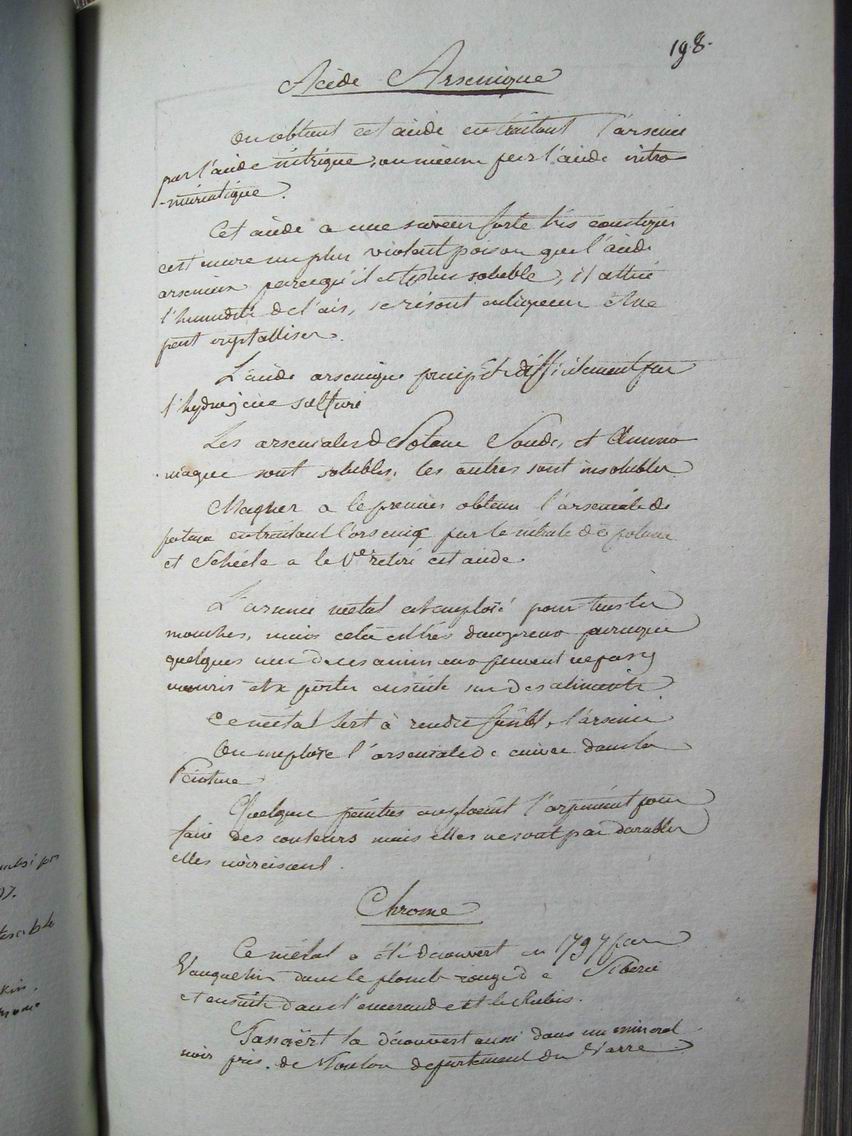 198.
Acide Arsenique
On obtient cet acide en traitant l'arsenic
par l'acide nitrique, ou mieux par l'acide nitro
-muriatique.
Cet acide a une saveur forte très caustique
c'est encore un plus violent poison que l'acide
arsenieux parcequ'il est plus soluble, il attire
l'humidité de l'air, se résout en liqueur et ne
peut crystalliser.
L'acide arsenique precipite difficilement par
l'hydrogène sulfuré
Les arseniates de Potasse Soude, et Ammo
-niaque sont solubles, les autres sont insolubles
Maquer a le premier obtenu l'arseniate de
potasse en traitant l'arsenic par le nitrate de potasse
et Schéele a le 1er retiré cet acide.
L'arsenic métal est emploié pour tuer les
mouches, mais cela est très dangereux parceque
quelques unes de ces animaux peuvent ne pas y
mourir et porter ensuite sur des aliments
Ce métal sert à rendre l'arsenic
On emploie l'arseniate de cuivre dans la
Peinture
Quelques peintres emploient l'orpiment pour
faire des couleurs mais elles ne sont pas durables
elles noircissent.
Chrome
Ce métal a été découvert en 1797 par
Vauquelin dans le plomb rouge de Siberie
et ensuite dans l'emeraude et le Rubis.
Tassaërt l'a découvert aussi dans un mineral
noir près de Toulon departement du Varre